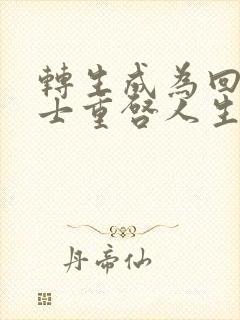 轉生成為回
士重啓人生
丹帝仙